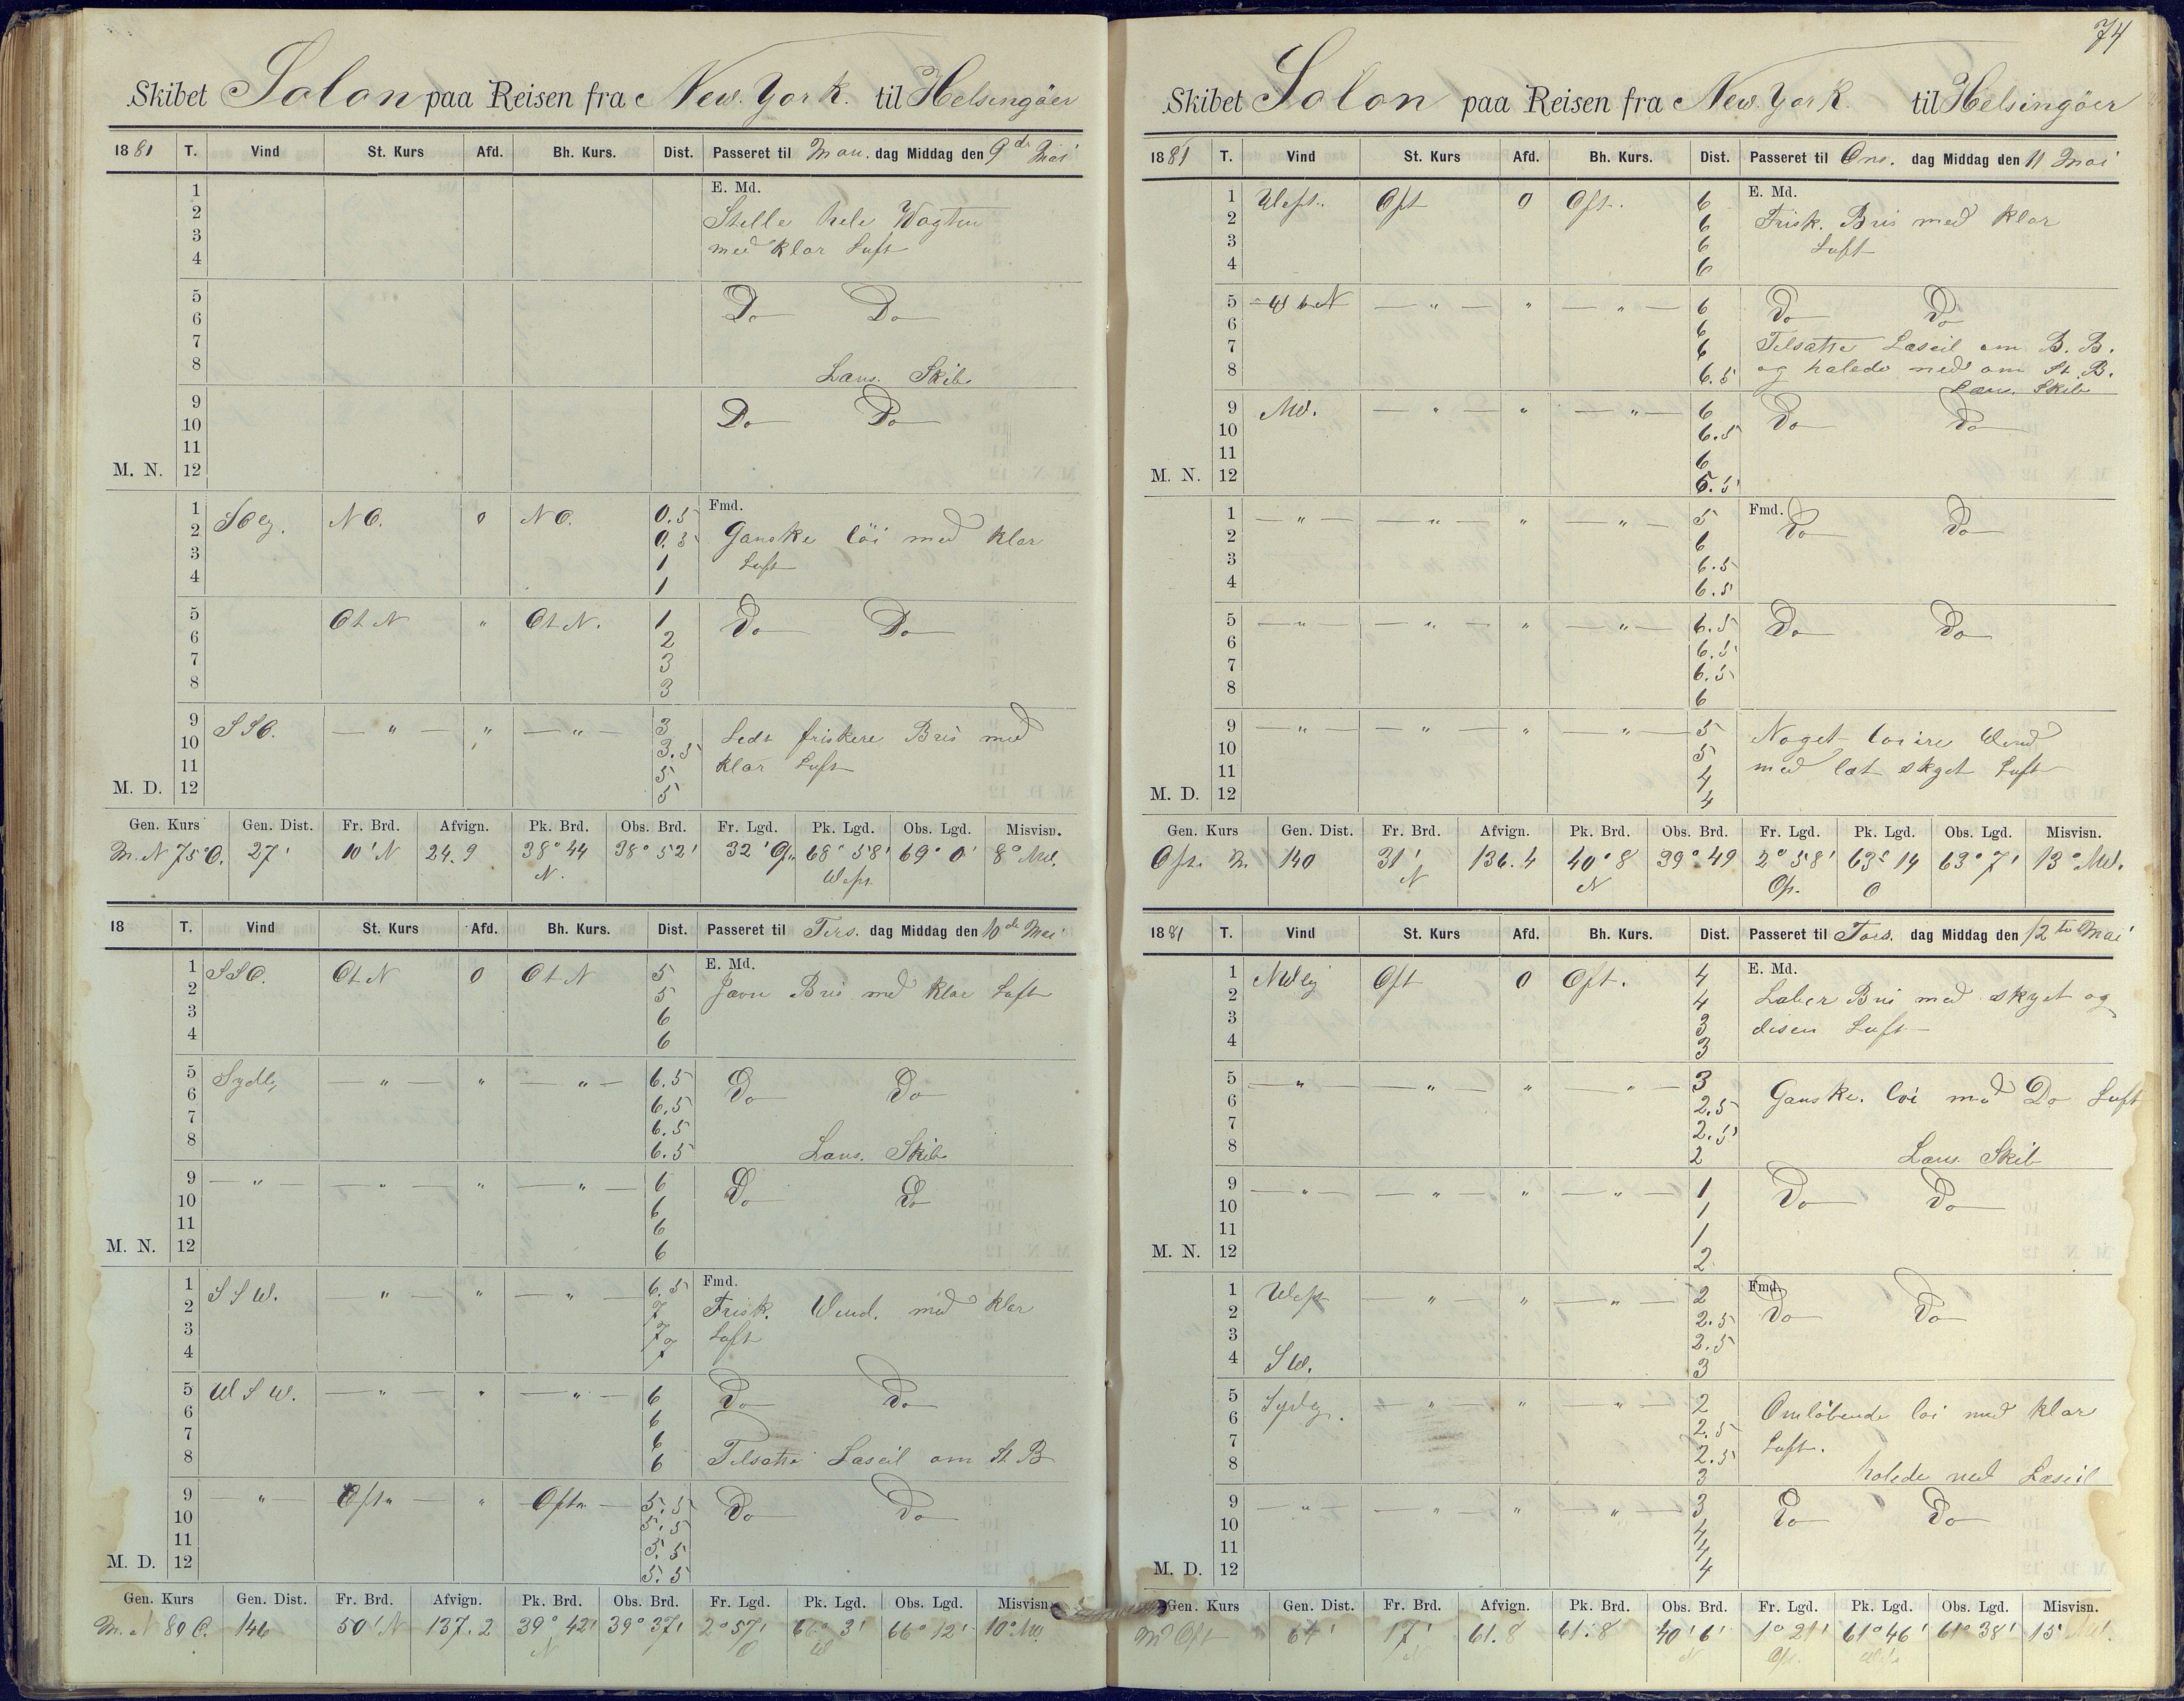 Skibet Solon paa Reisen fra New. York. til Helsingöer
1881 T. Vind St. Kurs Afd. Bh. Kurs. Dist. Passeret til Man. dag Middag den 9de Mai
E. Md.
1
2 Stille hele Vagten
3 med klar Luft
4
5
6 Do Do
7
8 Lans. Skib
9
10 Do Do
11
M. N. 12
Fmd.
1 SOlg. NO. 0 NO. 0.5
2 0.5 Ganske löi med klar
3 1 Luft
4 1
5 OtN " OtN. 1 Do Do
6 2
7 3
8 3
9 SSO. — " — " — " — 3
10 3.5 Lidt friskere Bris med
11 5 klar Luft
M. D. 12 5
Gen. Kurs Gen. Dist. Fr. Brd. Afvign. Pk. Brd. Obs. Brd. Fr. Lgd. Pk. Lgd. Obs. Lgd. Misvisn.
M. N 75° O. 27' 10' N 24.9 38° 44 N. 38° 52' 32' 68° 58' West 69° 0' 8° NW.
18 T. Vind St. Kurs Afd. Bh. Kurs. Dist. Passeret til Tirs. dag Middag den 10de Mai
E. Md.
1 SSO. OtN 0 OtN 5
2 5 Jævn Bris med klar Luft
3 6
4 6
5 Sydlg — " — " — " — 6.5
6 6.5 Do Do
7 6.5
8 6.5 Lans. Skib
9 — " — — " — " — " — 6
10 6 Do Do
11 6
M. N. 12 6
Fmd.
1 SSW. — " — " — " — 6.5
2 7 Frisk. Vind. med klar
3 7 Luft
4 7
5 WSW. — " — " — " — 6 Do Do
6 6
7 6
8 6 Tilsatte Læseil om St B
9 — " — Ost " — " Ost " — 5.5
10 5.5 Do Do
11 5.5
M. D. 12 5.5
Gen. Kurs Gen. Dist. Fr. Brd. Afvign. Pk. Brd. Obs. Brd. Fr. Lgd. Pk. Lgd. Obs. Lgd. Misvisn.
M. N 89 O. 146 50' N 137.2 39° 42' N 39° 37' 2° 57' O 66° 3' W 66° 12' 10° NW.
74
Skibet Solon paa Reisen fra New. York. til Helsingöer
1881 T. Vind St. Kurs Afd. Bh. Kurs. Dist. Passeret til Ons. dag Middag den 11 Mai
E. Md.
1 West. Ost 0 Ost. 6
2 6 Frisk. Bris med klar
3 6 Luft
4 6
5 WtN — " — " — " — 6 Do Do
6 6
7 6 Tilsatte Læseil om B. B.
8 6.5 og halede ned om St. B.
Lans. Skib
9 NW. — " — " — " — 6 Do Do
10 6.5
11 6
M. N. 12 6.5
Fmd.
1 — " — — " — " — " — 5 Do Do
2 6
3 6.5
4 6.5
5 — " — — " — " — " — 6.5 Do Do
6 6.5
7 6.5
8 6
9 — " — — " — " — " — 5 Noget löiere Vind
10 5
11 4 med let skyet Luft
M. D. 12 4
Gen. Kurs Gen. Dist. Fr. Brd. Afvign. Pk. Brd. Obs. Brd. Fr. Lgd. Pk. Lgd. Obs. Lgd. Misvisn.
Ost. M. 140 31' N 136.4 40° 8 N 39° 49 2° 58' Ost. 63° 14 O 63° 7' 13° NW.
1881 T. Vind St. Kurs Afd. Bh. Kurs. Dist. Passeret til Tors. dag Middag den 12te Mai
E. Md.
1 NWlg Ost 0 Ost. 4
2 4 Laber Bris med skyet og
3 3 disen Luft
4 3
5 — " — — " — " — " — 3
6 2.5 Ganske. löi med Do Luft
7 2.5
8 2 Lans. Skib
9 — " — — " — " — " — 1 Do Do
10 1
11 1
M. N. 12 2
Fmd.
1 West — " — " — " — 2
2 2.5 Do Do
3 2.5
4 SW. 3
5 Sydlg. — " — " — " — 2
6 2.5 Omlöbende löi med klar
7 2.5 Luft.
8 3 halede ned Læseil
9 — " — — " — " — " — 3 Do Do
10 4
11 4
M. D. 12 4
Gen. Kurs Gen. Dist. Fr. Brd. Afvign. Pk. Brd. Obs. Brd. Fr. Lgd. Pk. Lgd. Obs. Lgd. Misvisn.
Ost 64' 17' N 61.8 61.8 40° 6' N 1° 21' Ost. 61° 46' 61° 38' 15° NW.